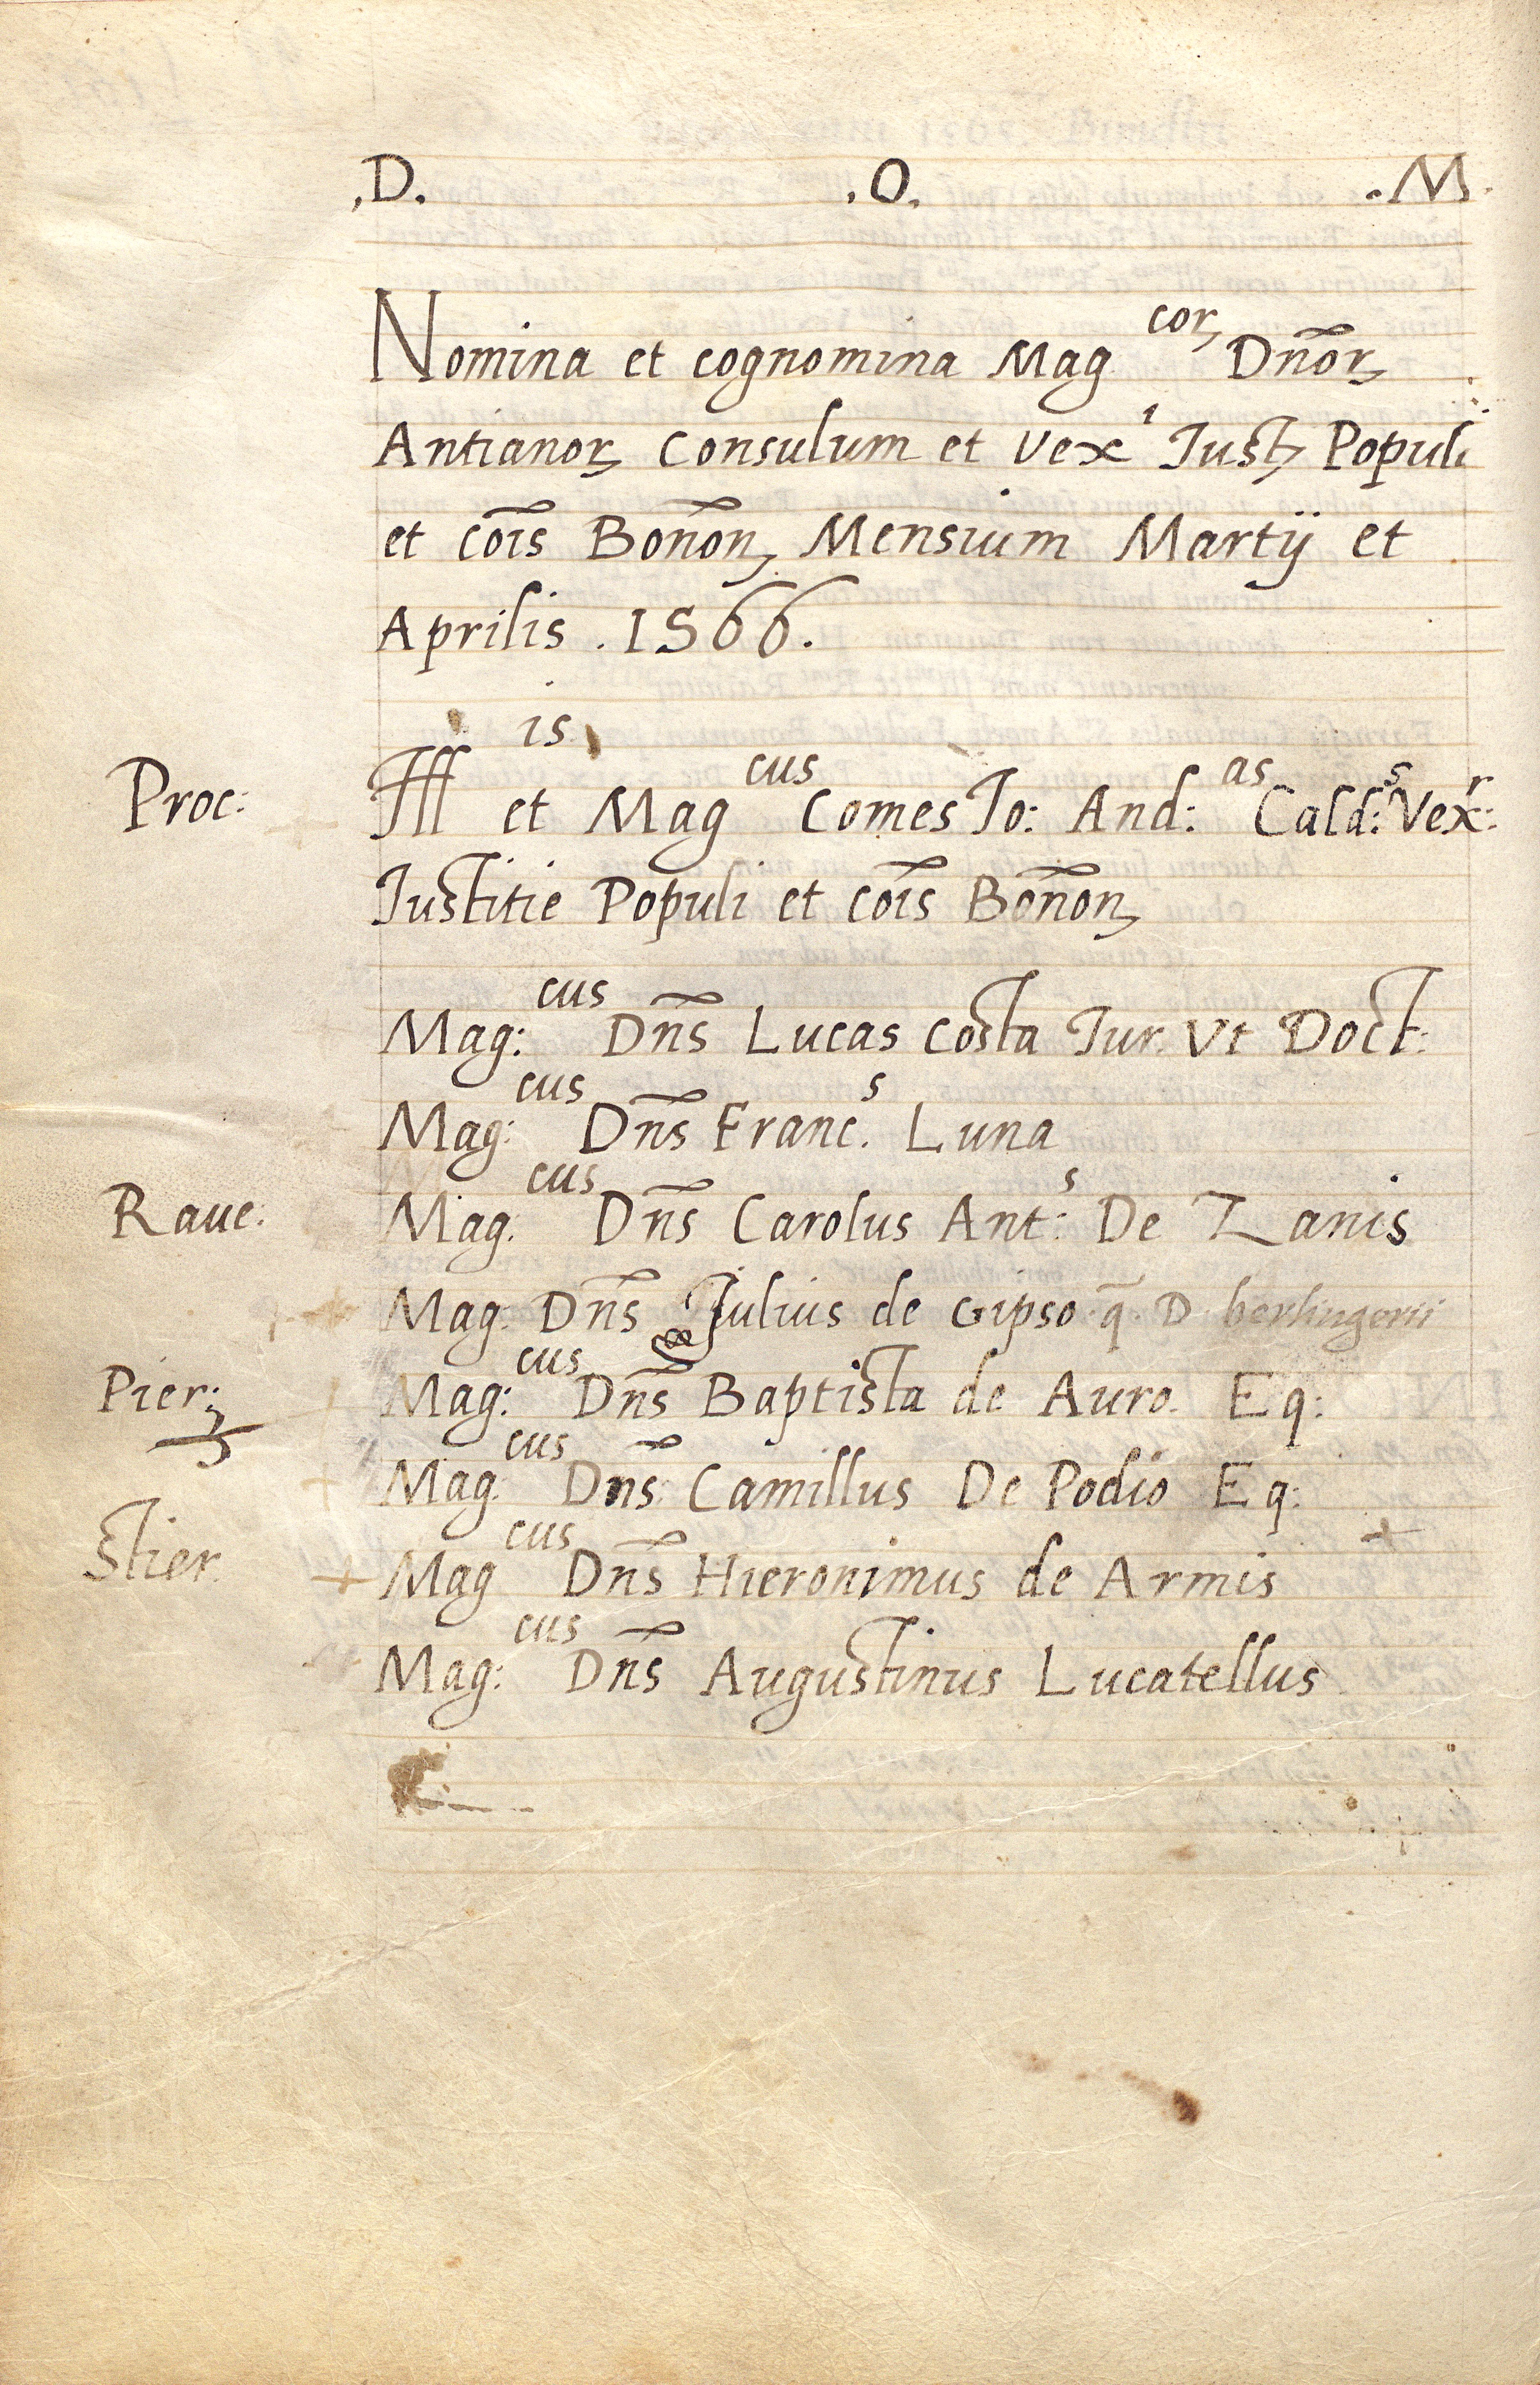 .D. .O. .M.
Nomina et cognomina Mag^corꝫ Dn̄orꝫ
Antianorꝫ Consulum et Vex^i Justꝫ Populi
et cōis Bonōnꝫ Mensium Martij et
Aprilis . 1566.
Proc: Ill^is et Mag^cus Comes Jo: And:^as Cald:^s Vex:^r
Justitie Populi et cōis Bonōnꝫ
Mag:^cus Dn̄s Lucas Costa Jur. Vt Doct:
Mag:^cus Dn̄s Franc.^s Luna
Raue: Mag.^cus Dn̄s Carolus Ant:^s De Zanis
Mag. Dn̄s Julius de Gipso q̄. D. berlingerii
Pier: Mag:^cus Dn̄s Baptista de Auro. Eq:
Mag.^cus Dn̄s Camillus De Podio Eq:
Stier. + Mag^cus Dn̄s Hieronimus de Armis +
Mag:^cus Dn̄s Augustinus Lucatellus